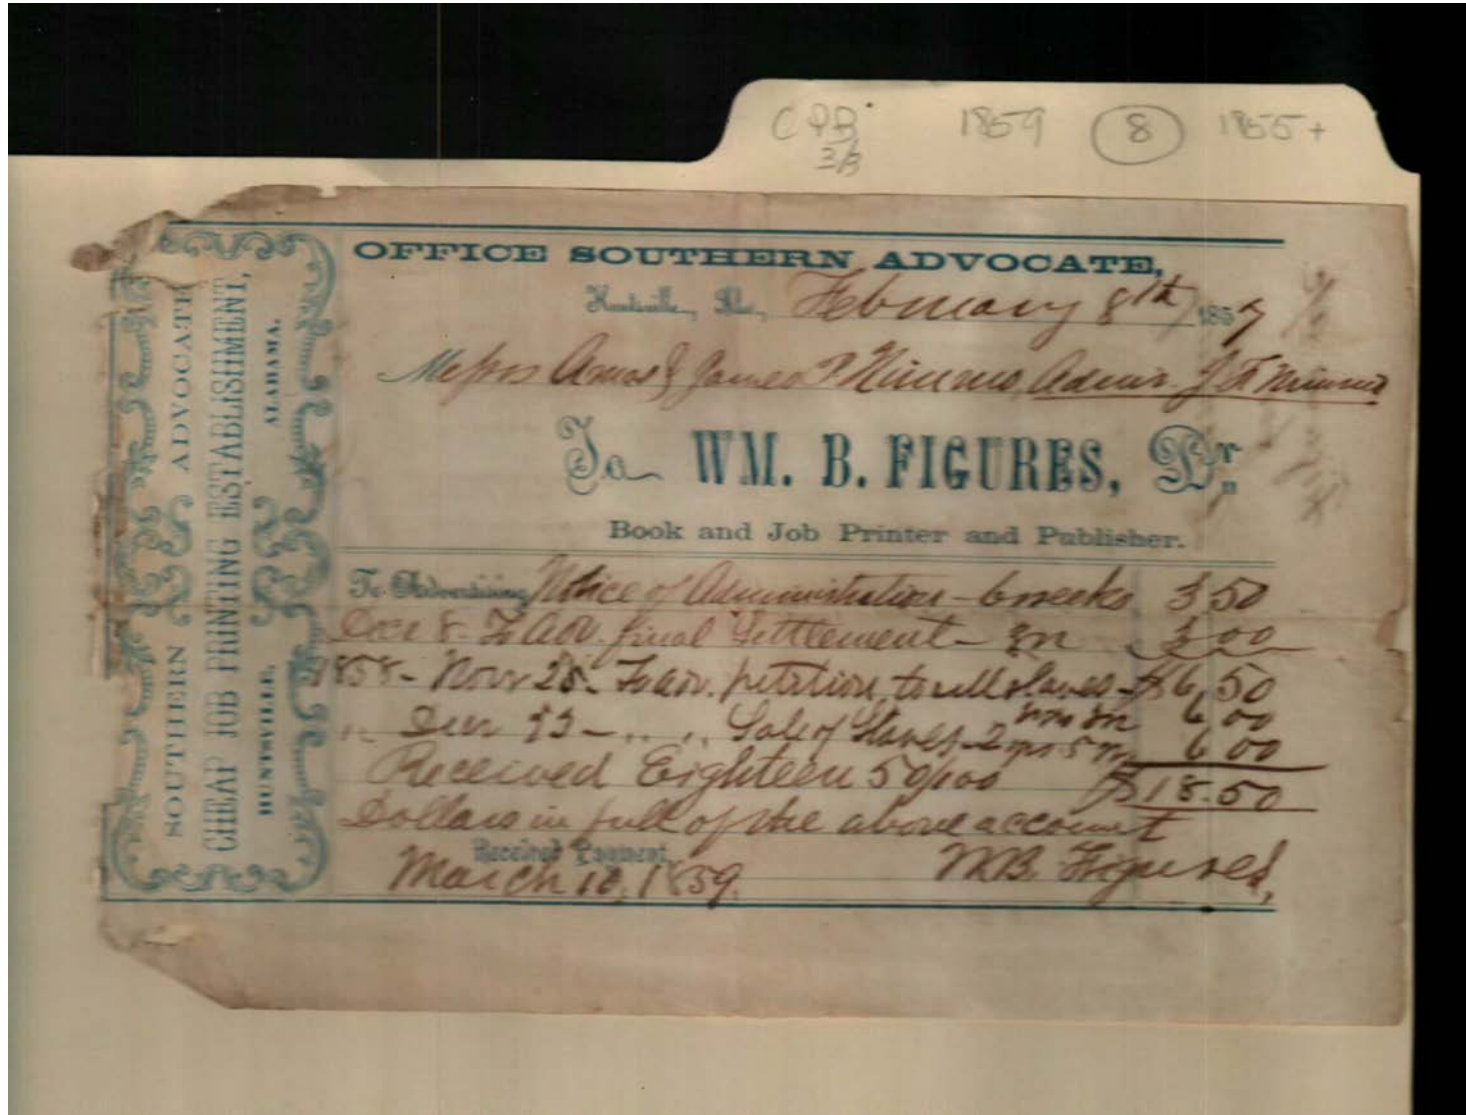 CPB 1859 8 1855+
3/3
SOUTHERN ADVOCATE
CHEAP JOB PRINTING ESTABLISHMENT,
HUNTSVILLE, ALABAMA.
OFFICE SOUTHERN ADVOCATE,
Huntsville, Ala., February 8th 1857
Messrs Amos & James P Nimmo, Admir. J Nimmo
To WM. B. FIGURES, Dr.
Book and Job Printer and Publisher.
To Advertising Notice of Administration - 6 weeks 3 50
8 - To adv. final Settlement - 3 00
1858 - Novr 25 - To adv. petition to sell slaves - $6,50
6 00
" - " " Sale of Slaves - 6 00
Received Eighteen 50/100 $18.50
Dollars in full of the above account
Received Payment,
March 10, 1859. W.B. Figures,